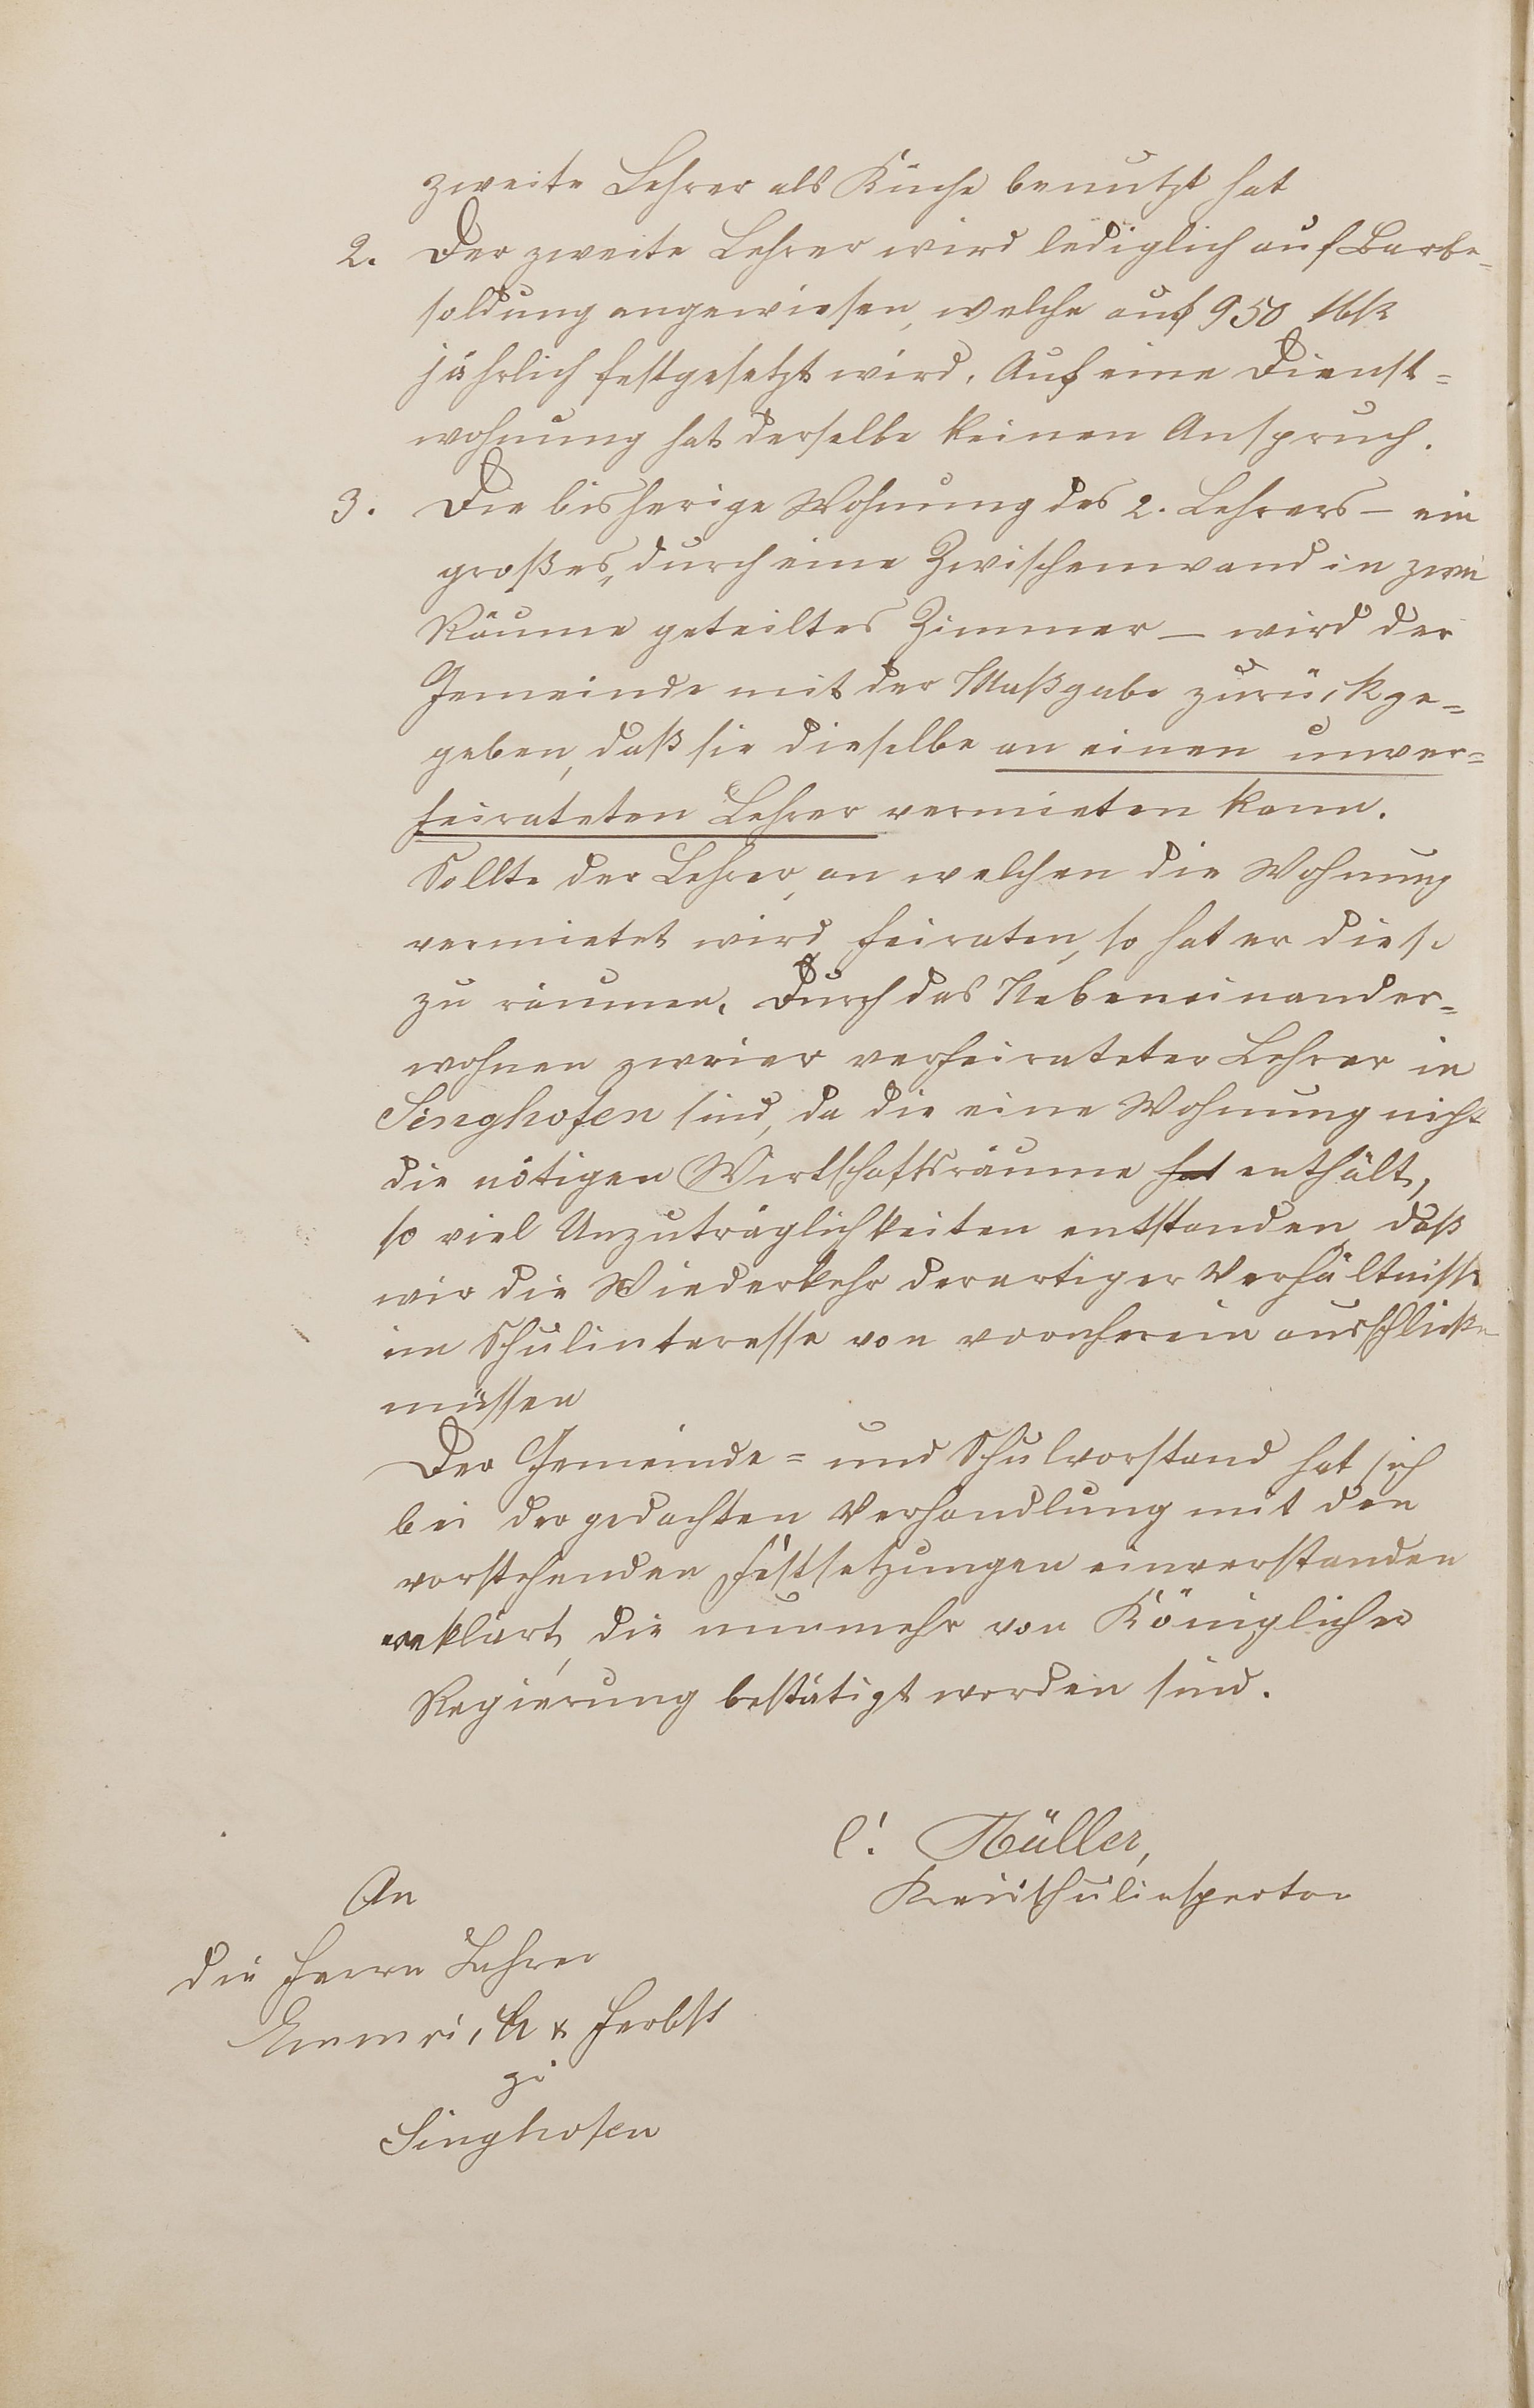 zweite Lehrer als Küche benutzt hat
2. Der zweite Lehrer wird lediglich auf Barbe=
soldung angewiesen, welche auf 950 Mk
jährlich festgesetzt wird. Auf eine Dienst=
wohnung hat derselbe keinen Anspruch.
3. Die bisherige Wohnung des 2. Lehrers – ein
großes, durch eine Zwischenwand in zwei
Räume geteiltes Zimmer – wird der
Gemeinde mit der Maßgabe zurückge=
geben, daß sie dieselbe an einen unver=
heirateten Lehrer vermieten kann.
Sollte der Lehrer, an welchen die Wohnung
vermietet wird, heiraten, so hat er diese
zu räumen. Durch das Nebeneinander=
wohnen zweier verheirateter Lehrer in
Singhofen sind, da die eine Wohnung nicht
die nötigen Wirtschaftsräume hat enthält,
so viel Unzuträglichkeiten entstanden, daß
wir die Wiederkehr derartiger Verhältnisse
im Schulinteresse von vornherein ausschließen
müssen
Der Gemeinde= und Schulvorstand hat sich
bei der gedachten Verhandlung mit den
vorstehenden Festsetzungen einverstanden
erklärt, die nunmehr von Königlicher
Regierung bestätigt worden sind.
Müller,
Kreisschulinspektor
An
die Herrn Lehrer
Emmrich & Herbst
zu
Singhofen